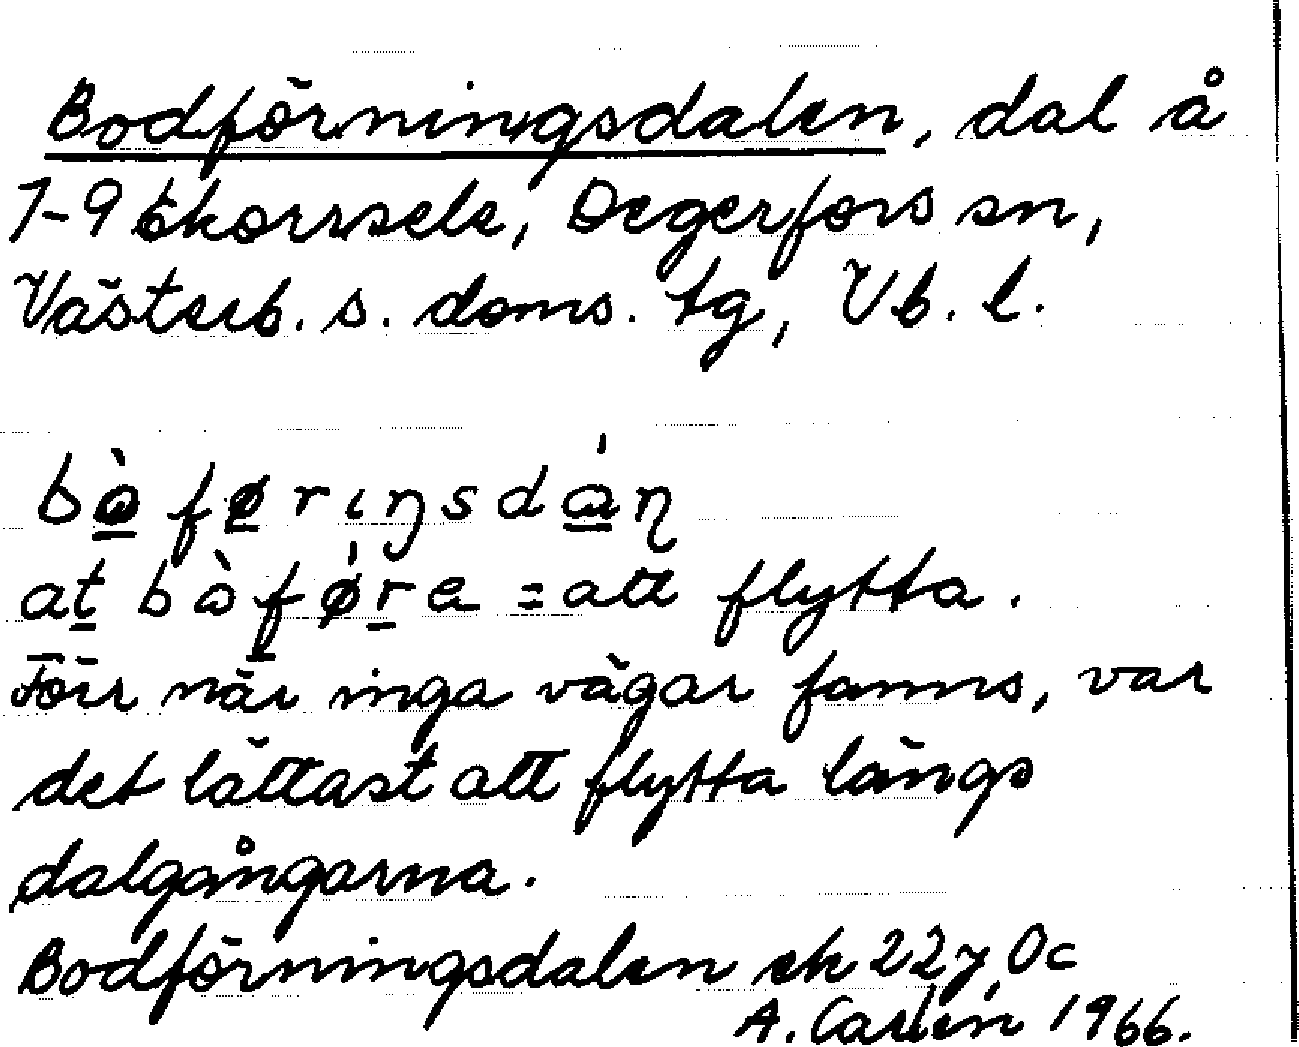 Bodförningsdalen, dal å
7-9 Skorrsele, Degerfors sn,
Västerb. s. doms. tg, Vb. l.
bòføriŋsdán
at bòføre = att flytta.
Förr när inga vägar fanns, var
det lättast att flytta längs
dalgångarna.
Bodförningsdalen ek 22 y, 0c
A. Carlén 1966.